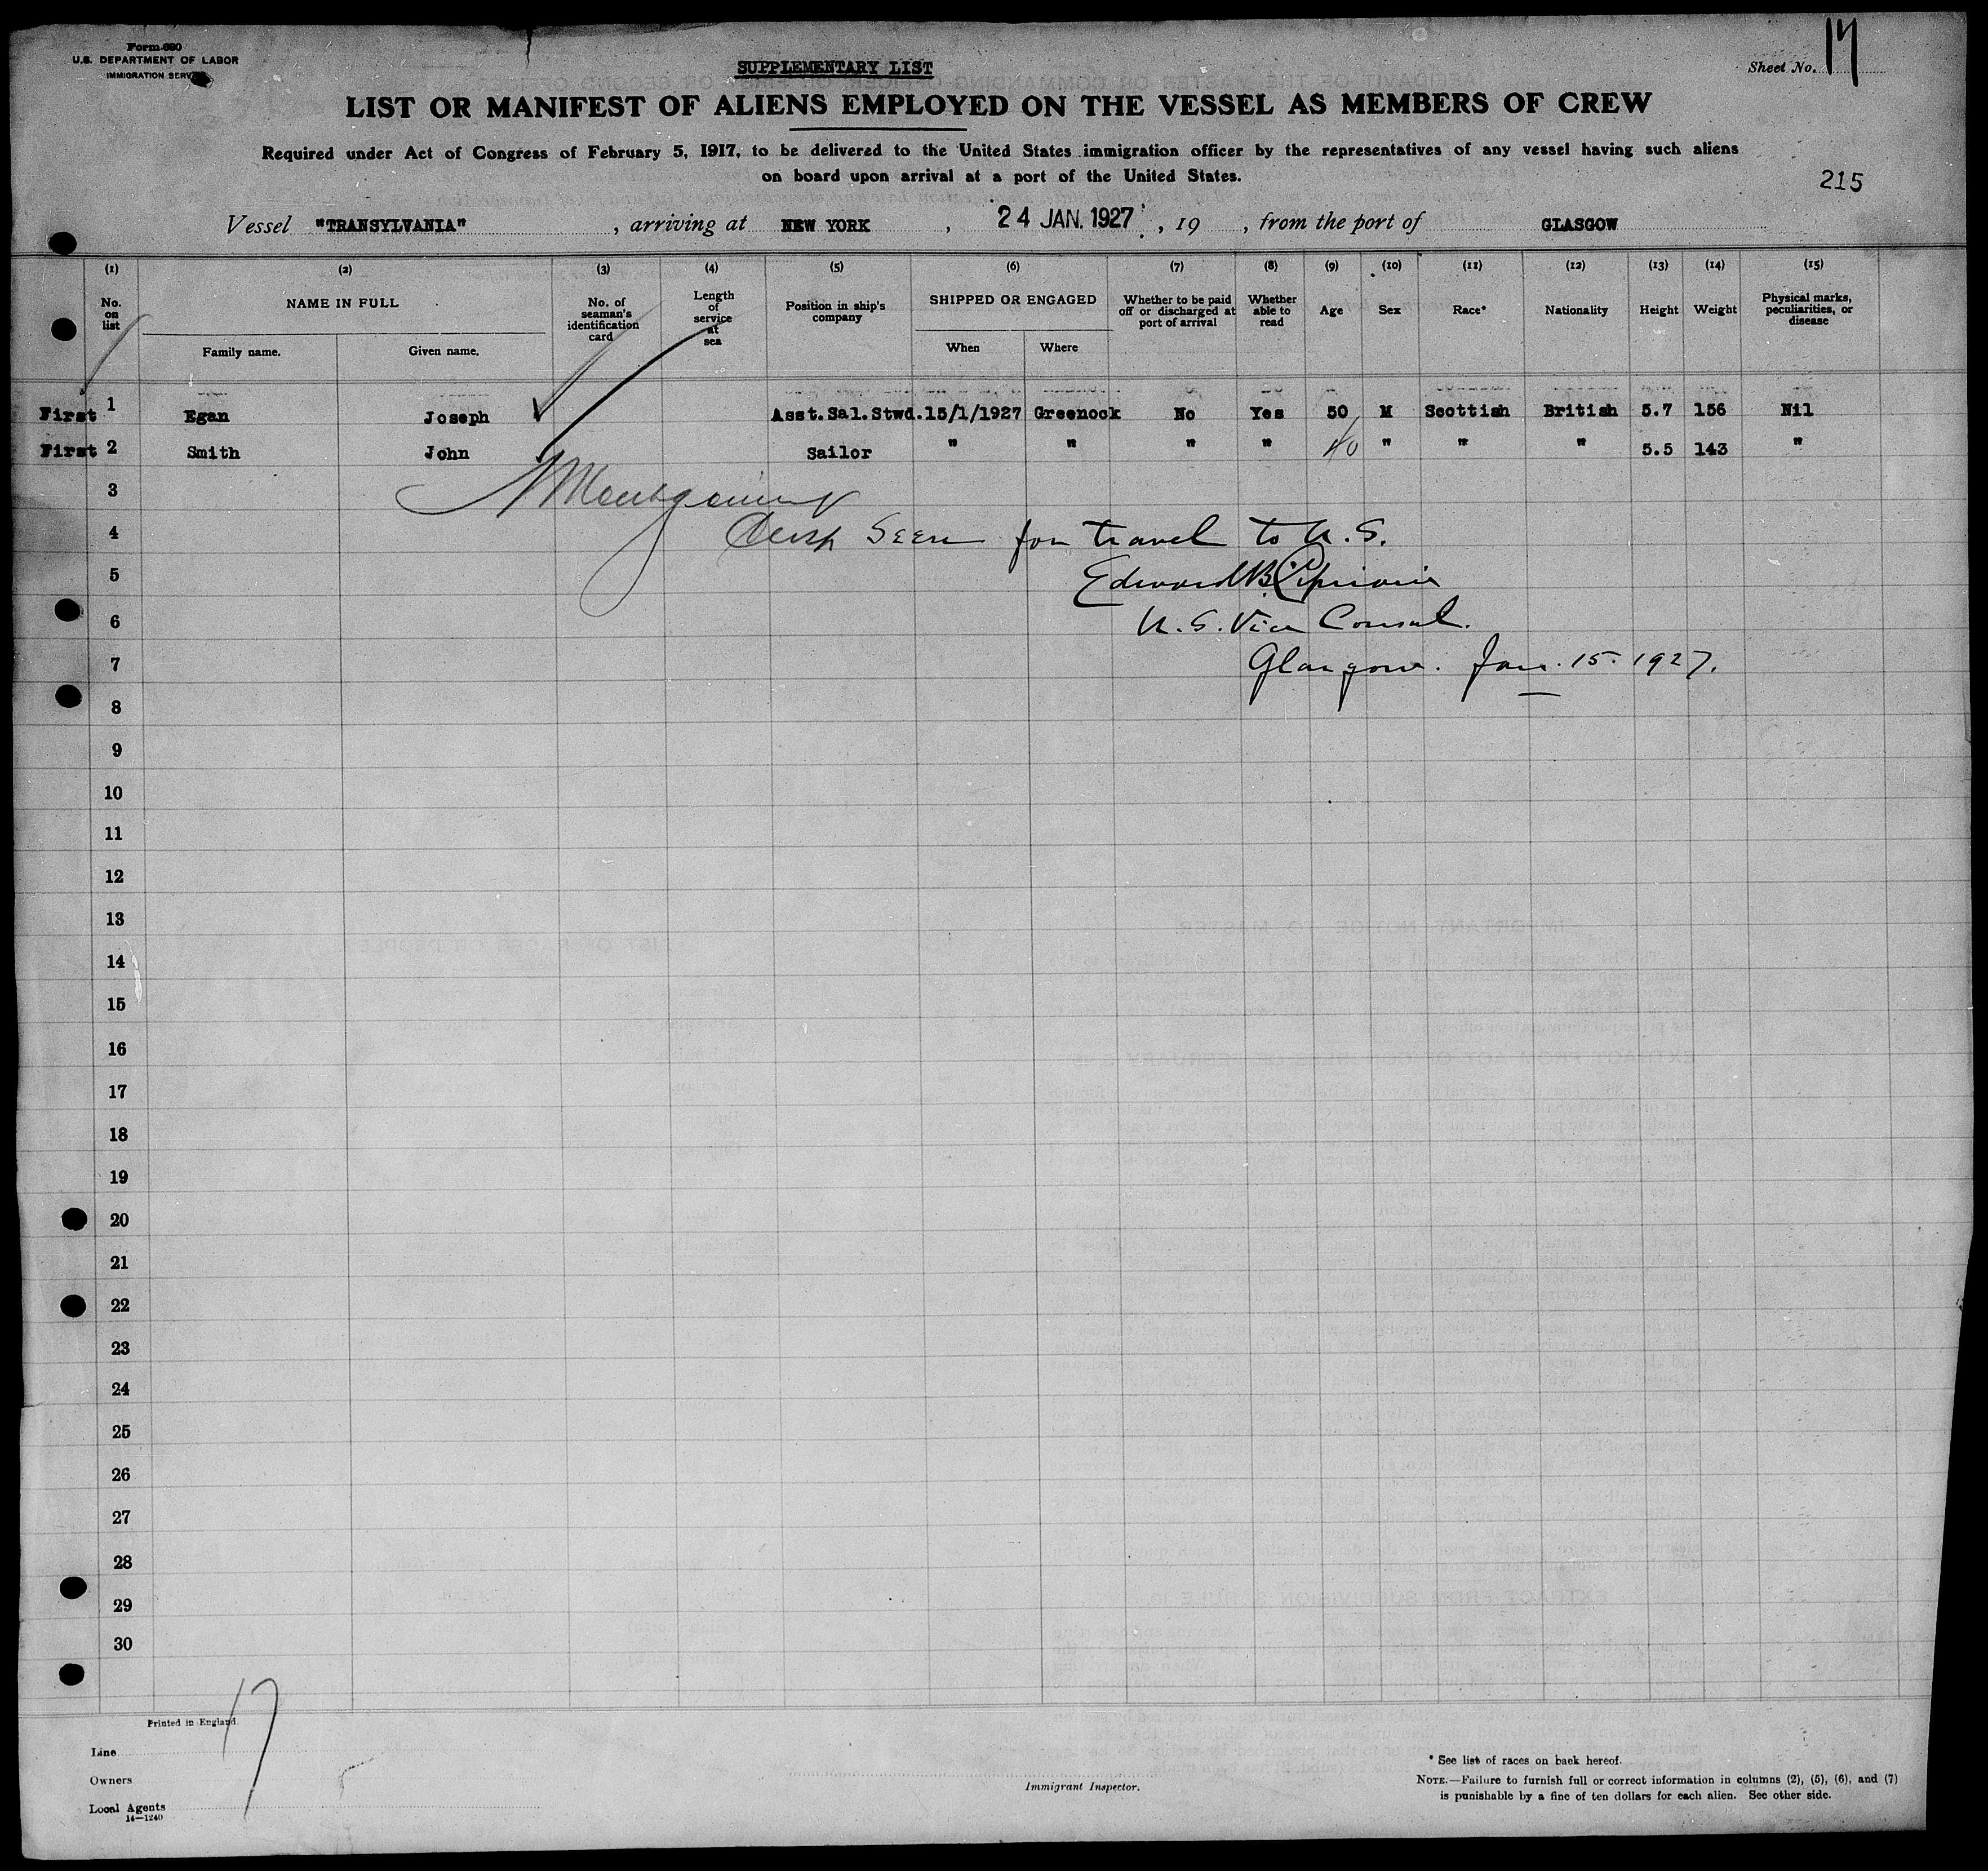 Form 680
U.S. DEPARTMENT OF LABOR
IMMIGRATION SERVICE
SUPPLEMENTARY LIST
Sheet No. 17
LIST OR MANIFEST OF ALIENS EMPLOYED ON THE VESSEL AS MEMBERS OF CREW
Required under Act of Congress of February 5, 1917, to be delivered to the United States immigration officer by the representatives of any vessel having such aliens
on board upon arrival at a port of the United States.
215
Vessel "TRANSYLVANIA", arriving at NEW YORK, 24 JAN. 1927, 19 , from the port of GLASGOW
(1) (2) (3) (4) (5) (6) (7) (8) (9) (10) (11) (12) (13) (14) (15)
No. on list NAME IN FULL No. of seaman's identification card Length of service at sea Position in ship's company SHIPPED OR ENGAGED Whether to be paid off or discharged at port of arrival Whether able to read Age Sex Race* Nationality Height Weight Physical marks, peculiarities, or disease
Family name. Given name. When Where
First 1 Egan Joseph Asst.Sal.Stwd. 15/1/1927 Greenock No Yes 50 M Scottish British 5.7 156 Nil
First 2 Smith John Sailor " " " " 40 " " " 5.5 143 "
3 Montgomery
4 Seen for travel to U.S.
5 Edward B.
6 U.S. Vice Consul.
7 Glasgow. Jan. 15. 1927.
8
9
10
11
12
13
14
15
16
17
18
19
20
21
22
23
24
25
26
27
28
29
30
17
Printed in England.
Line
Owners
Local Agents
14—1240
Immigrant Inspector.
* See list of races on back hereof.
NOTE.—Failure to furnish full or correct information in columns (2), (5), (6), and (7)
is punishable by a fine of ten dollars for each alien. See other side.